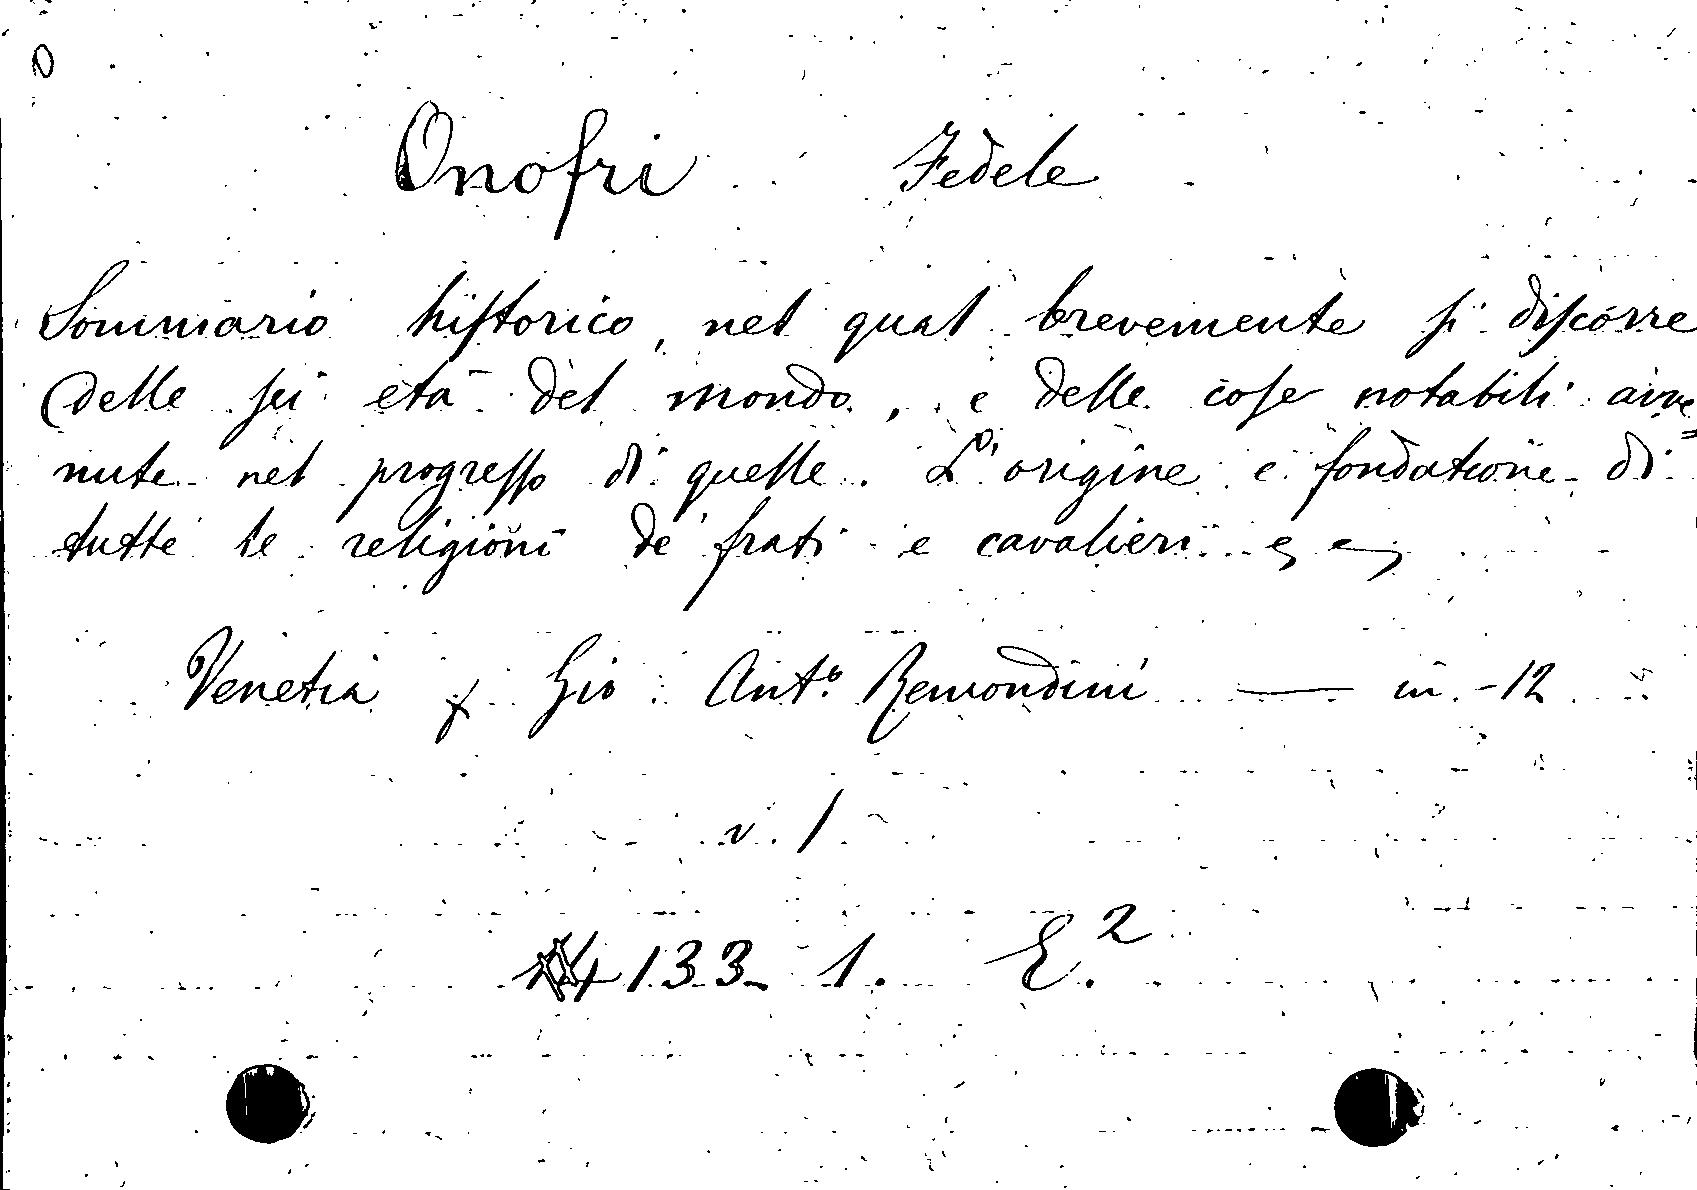 O
Onofri Fedele
Sommario hiſtorico, nel qual brevemente ſi diſcorre
delle ſei età del mondo, e delle coſe notabili avve=
nute nel progreſſo di quelle. L'origine e fondatione di
tutte le religioni de' frati e cavalieri
Venetia Gio: Ant.º Remondini — in-12
v. 1
133. 1. E.²